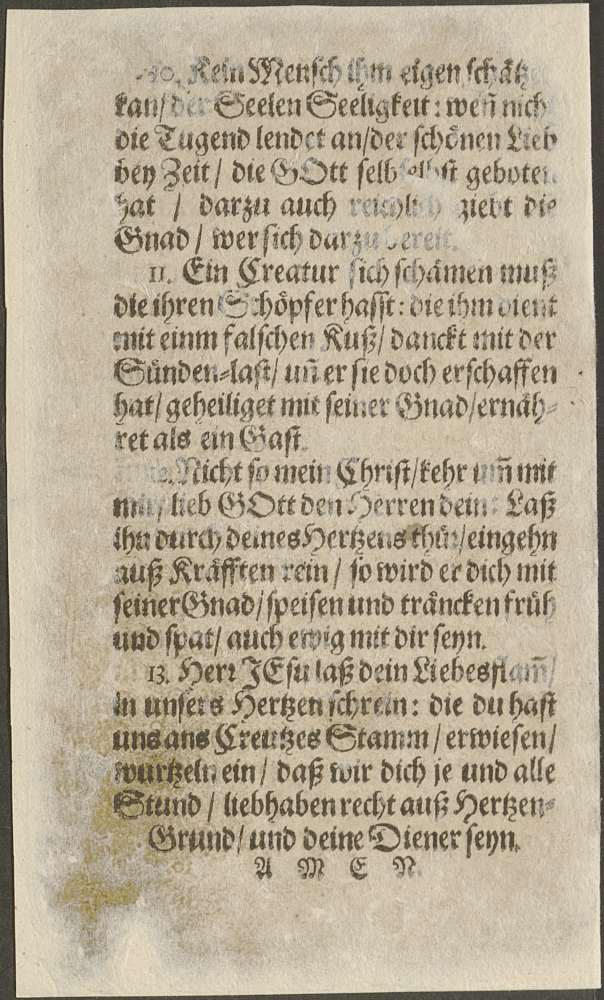 10. Kein Mensch ihm eigen schätzen
kan/ der Seelen Seeligkeit: weñ nich
die Tugend lendet an/der schönen Lieb
bey Zeit/ die GOtt selb selbst geboten
hat / darzu auch reichlich ziebt die
Gnad / wer sich darzu bereit.
11. Ein Creatur sich schämen muß
die ihren Schöpfer hasst: die ihm dient
mit einm falschen Kuß/ danckt mit der
Sünden-last/ uñ er sie doch erschaffen
hat/ geheiliget mit seiner Gnad/ernäh-
ret als ein Gast.
Nicht so mein Christ/kehr umm mit
mir/ lieb GOtt den Herren dein: Laß
ihn durch deines Hertzens thür/eingehn
auß Kräfften rein / so wird er dich mit
seiner Gnad/speisen und träncken früh
und spat/ auch ewig mit dir seyn.
13. Herr JEsu laß dein Liebesflam̃/
in unsers Hertzen schrein: die du hast
uns ans Creutzes Stamm / erwiesen/
wurtzeln ein / daß wir dich je und alle
Stund / liebhaben recht auß Hertzen-
Grund/ und deine Diener seyn.
A M E N.